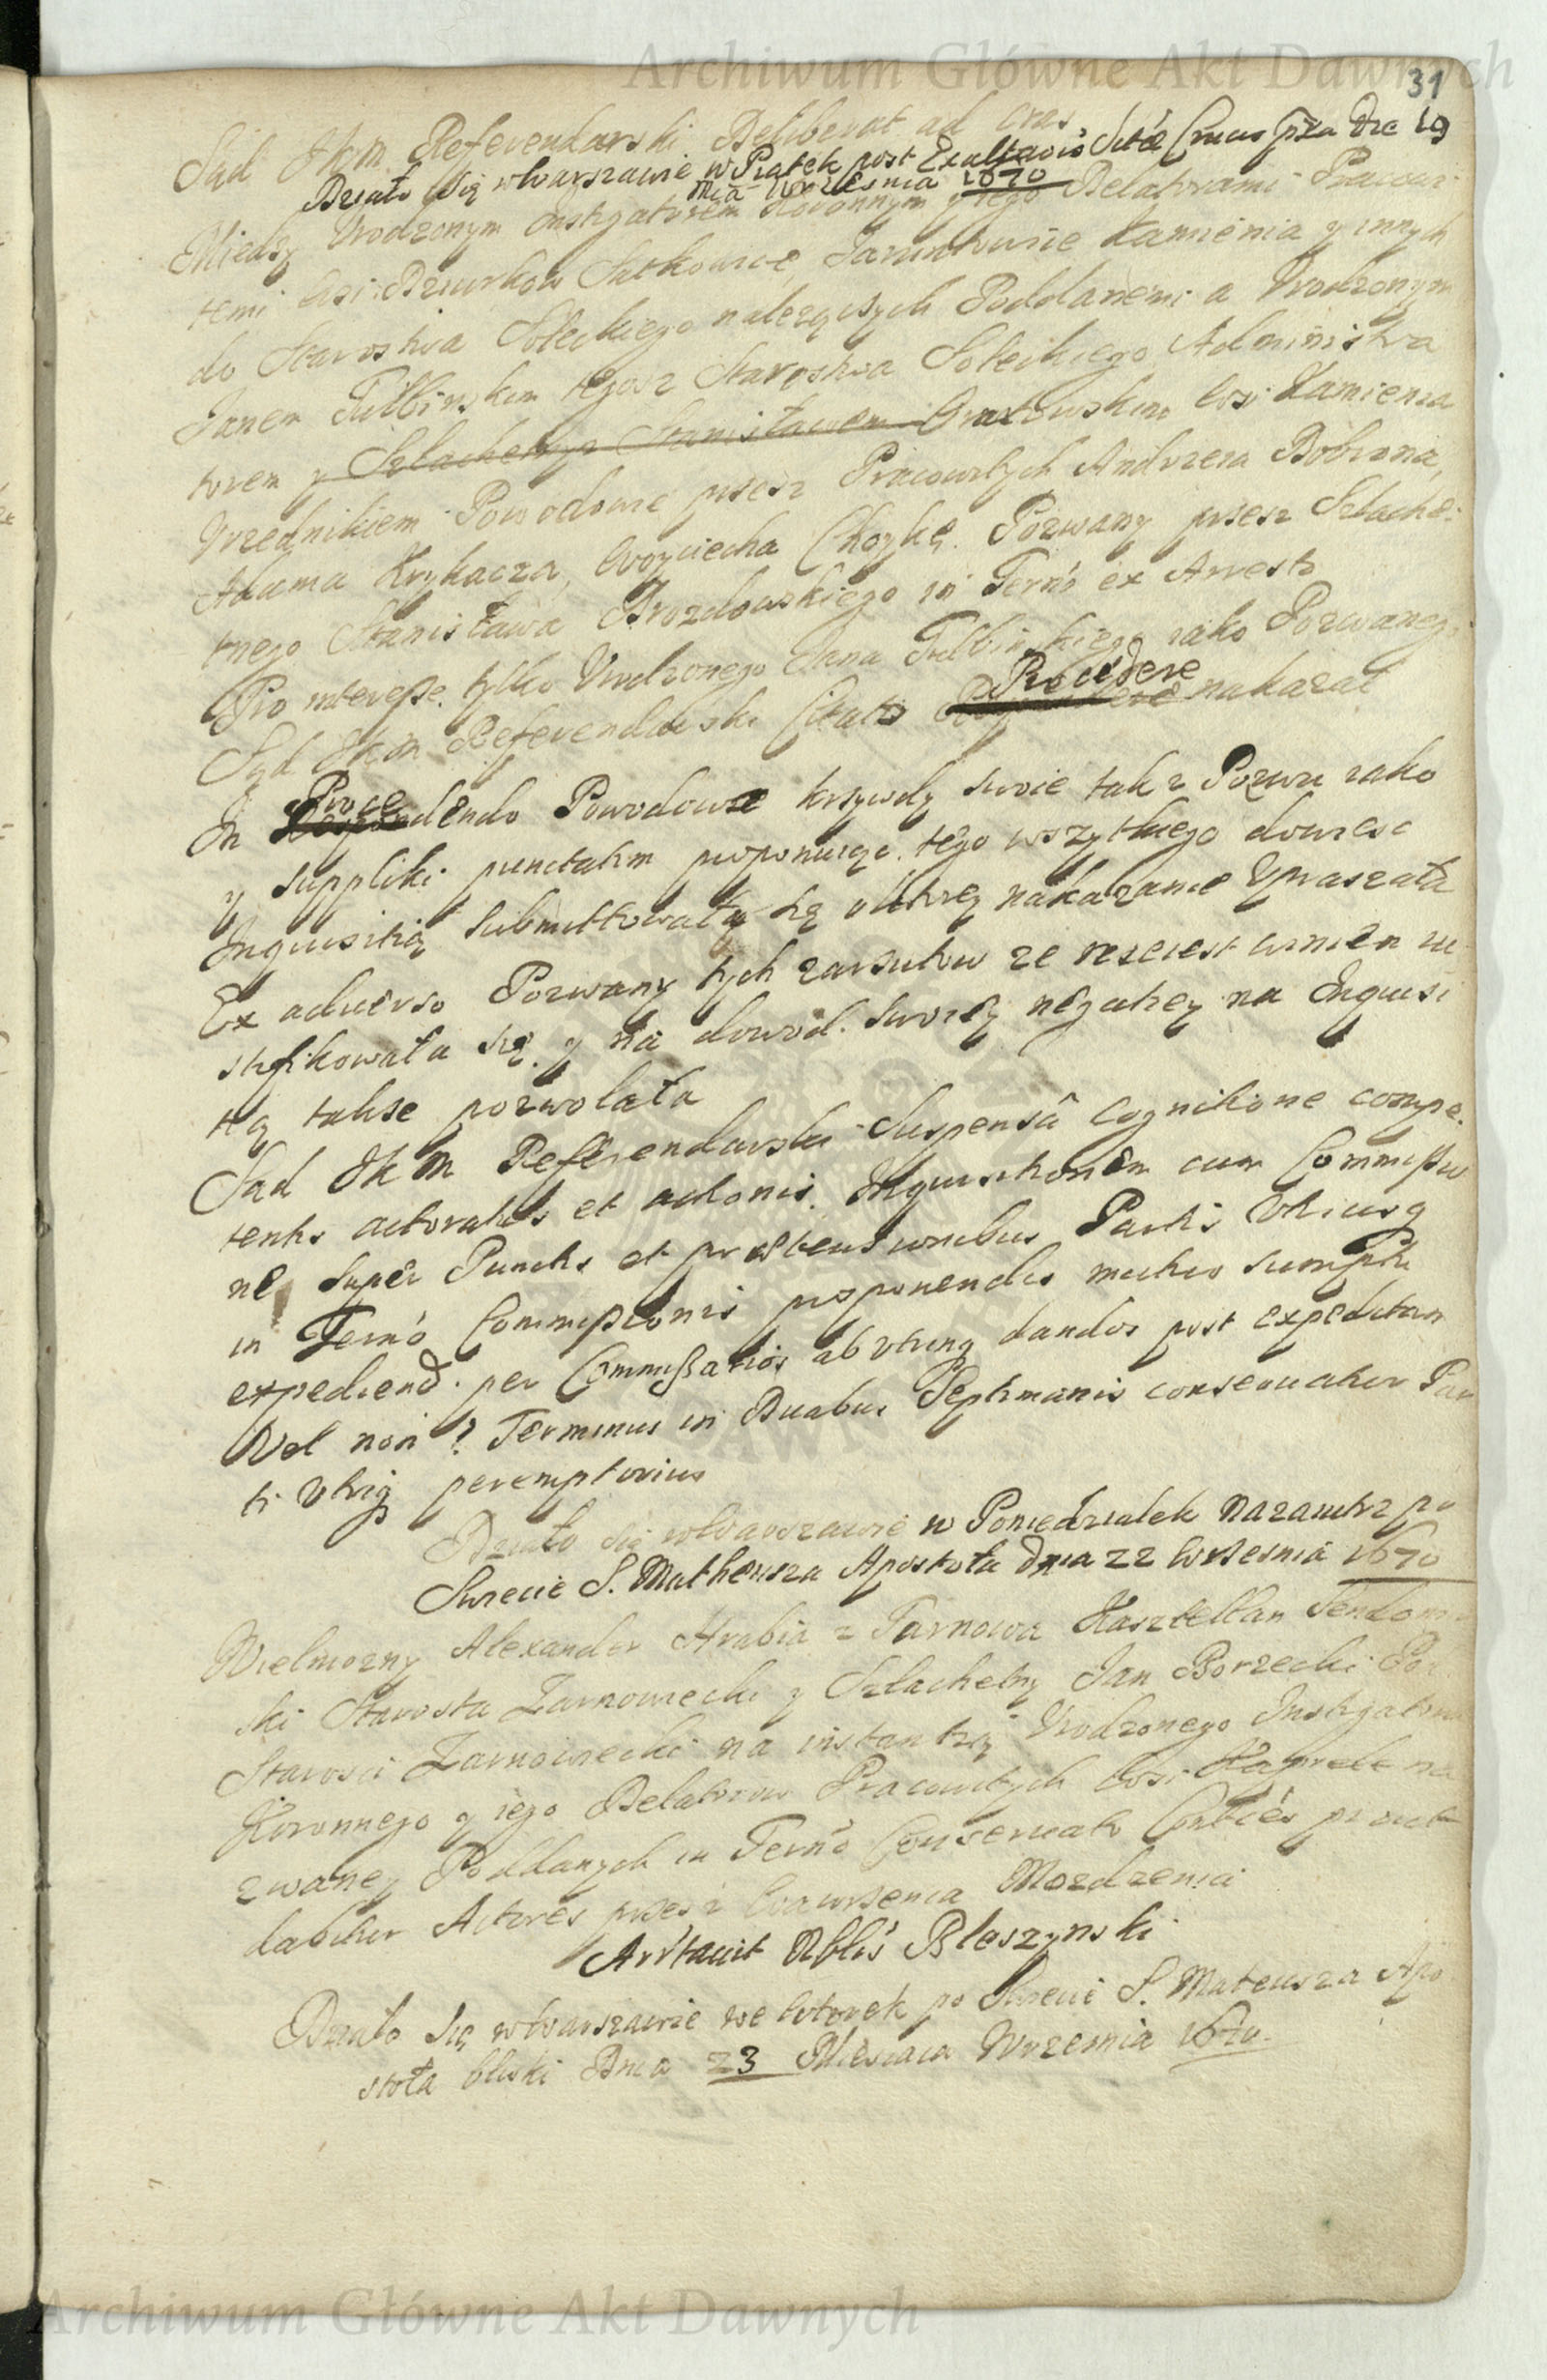 Archiwum Główne Akt Dawnych
31
Sąd JKM Referendarski Deliberat ad cras.
Działo się wWarszawie w Piątek post Exaltaõis Sctæ Crucis pãa Die 19
Mca Września 1670
Między Urodzonym Instigatorem Koronnym y iego Delatorami Pracowi-
temi wsi Dziurkow Sutkowice, Kamienia y innych
do Starostwa Soleckiego należących Poddanemi a Urodzonym
Janem Tulbinskim tegosz Starostwa Soleckiego Administra
torem y Szlachetnym Stanisławem wsi Kamienia
Urzednikiem Powodowie przesz Pracowitych Andrzeia Bobrzna,
Adama Krzykacza, Woyciecha Chozkę. Pozwany przesz Szlache-
tnego Stanisława Brozdowskiego in Termo ex Arresto
Pro interesse tylko Urodzonego Jana Tulbinskiego iako Pozwanego
Sąd JKM Referendarski Citato Procedere nakazał
In Procedendo Powodowie krzywdy swoie tak z Pozwu iako
y suppliki punctatim proponuiąc. tego wszytkiego dowiesc
Inquisitią submittowały się o ktorey nakazanie Upraszała
Ex adverso Pozwany tych zarzutow ze nie iest winien iu-
stifikowała się y na dowod swoiey negatiey na Inquisi
tią takze pozwolała
Sąd JKM Referendarski Suspensâ Cognitione compe-
tentis actoratus et actionis. Inquisitionem cum Commissio
ne super Punctis et prætensionibus Partis Utriusq
in Termo Commissionis proponendis mutuo sumptu
expediend. per Commissarios ab utrinq dandos post expeditam
Vel non? Terminus in Duabus Septimanis conservatur Par
ti Utriq peremptorius
Działo się wWarszawie w Poniedziałek nazaiutrz po
Swiecie S. Matheusza Apostoła Dnia 22 Wrzesnia 1670
Wielmozny Alexander Hrabia z Tarnowa Kasztellan Sendomir
ski Starosta Zarnowiecki y Szlachetny Jan Borzecki Pod
Starosci Zarnowiecki na instantią Urodzonego Instigatora
Koronnego y iego Delatorow Pracowitych wsi na
zwaney Poddanych in Termo Conservato Conties prout
labitur Actores przesz Wawrzenca Mozdzenia
Arrtavit Nblis Bleszynski
Działo się wWarszawie we Wtorek po Swiecie S. Mateusza Apo
stoła bliski Dnia 23 Miesiaca Wrzesnia 1670.
Archiwum Główne Akt Dawnych